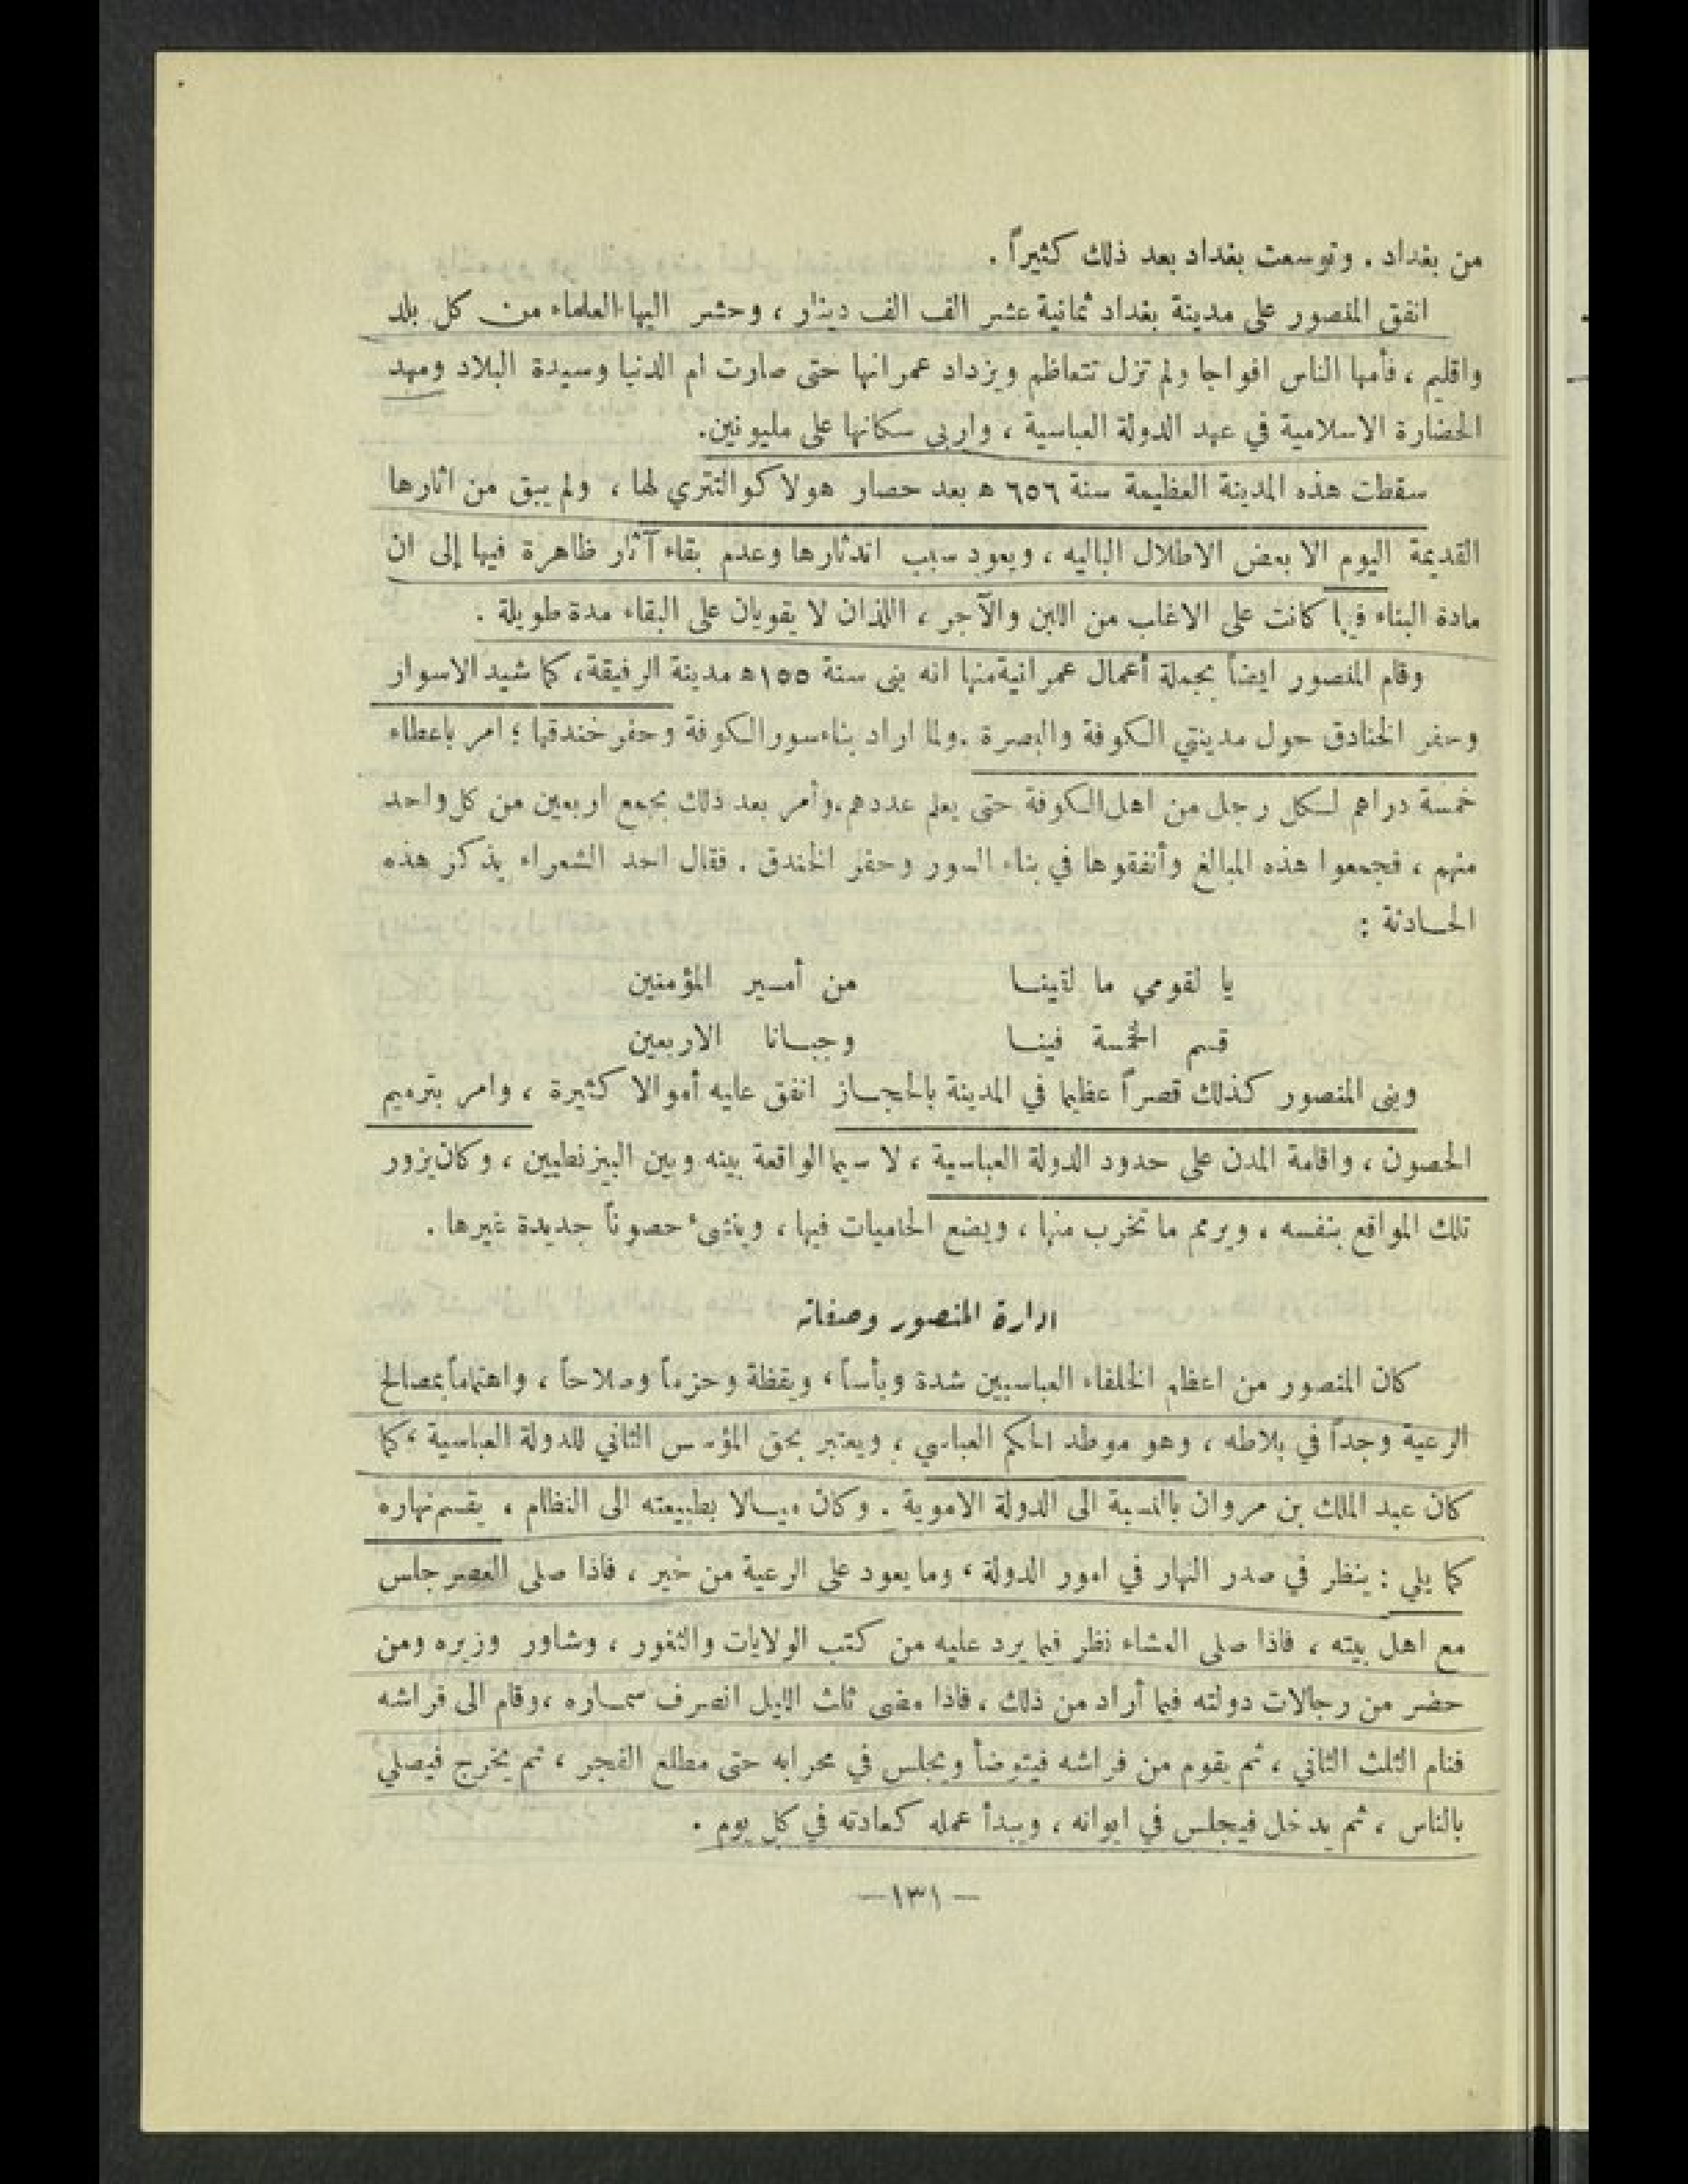 من بغداد . وتوسعت بغداد بعد ذلك كثيراً .
انفق المنصور على مدينة بغداد ثمانية عشر الف الف دينار ، وحشر اليها العلماء من كل بلد
واقليم ، فأمها الناس افواجا ولم تزل تتعاظم ويزداد عمرانها حتى صارت ام الدنيا وسيدة البلاد ومهد
الحضارة الاسلامية في عهد الدولة العباسية ، واربى سكانها على مليونين.
سقطت هذه المدينة العظيمة سنة ٦٥٦ ه بعد حصار هولاكو التتري لها ، ولم يبق من اثارها
القديمة اليوم الا بعض الاطلال الباليه ، ويعود سبب اندثارها وعدم بقاء آثار ظاهرة فيها إلى ان
مادة البناء فيها كانت على الاغلب من اللبن والآجر ، اللذان لا يقويان على البقاء مدة طويلة .
وقام المنصور ايضاً بجملة أعمال عمرانية منها انه بنى سنة ١٥٥ه مدينة الرفيقة، كما شيد الاسوار
وحفر الخنادق حول مدينتي الكوفة والبصرة .ولما اراد بناء سور الكوفة وحفر خندقها ؛ امر باعطاء
خمسة دراهم لكل رجل من اهل الكوفة حتى يعلم عددهم،وأمر بعد ذلك بجمع اربعين من كل واحد
منهم ، فجمعوا هذه المبالغ وأنفقوها في بناء السور وحفر الخندق . فقال احد الشعراء يذكر هذه
الحادثة :
يا لقومي ما لقينا من أمير المؤمنين
قسم الخمسة فينا وجبانا الاربعين
وبنى المنصور كذلك قصراً عظيما في المدينة بالحجاز انفق عليه أموالا كثيرة ، وامر بترميم
الحصون ، واقامة المدن على حدود الدولة العباسية ، لا سيما الواقعة بينه وبين البيزنطيين ، وكان يزور
تلك المواقع بنفسه ، ويرمم ما تخرب منها ، ويضع الحاميات فيها ، وينشىء حصوناً جديدة غيرها .
ادارة المنصور وصفاته
كان المنصور من اعظم الخلفاء العباسيين شدة وبأساً ، ويقظة وحزماً وصلاحاً ، واهتماماً بمصالح
الرعية وجداً في بلاطه ، وهو موطد الحكم العباسي ، ويعتبر بحق المؤسس الثاني للدولة العباسية ، كما
كان عبد الملك بن مروان بالنسبة الى الدولة الاموية . وكان ميالا بطبيعته الى النظام ، يقسم نهاره
كما يلي : ينظر في صدر النهار في امور الدولة ، وما يعود على الرعية من خير ، فاذا صلى العصر جلس
مع اهل بيته ، فاذا صلى العشاء نظر فيما يرد عليه من كتب الولايات والثغور ، وشاور وزيره ومن
حضر من رجالات دولته فيما أراد من ذلك ، فاذا مضى ثلث الليل انصرف سماره ،وقام الى فراشه
فنام الثلث الثاني ، ثم يقوم من فراشه فيتوضأ ويجلس في محرابه حتى مطلع الفجر ، ثم يخرج فيصلي
بالناس ، ثم يدخل فيجلس في ايوانه ، ويبدأ عمله كعادته في كل يوم .
—١٣١—